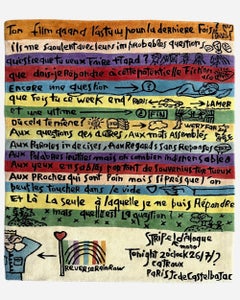 Ton film quand l'as tu vu pour la dernière Fois?
ils me saoulent avec leurs improbables question
qu'est ce que tu veux Faire + Tard?
que dois-je Répondre à cette potentielle Fiction
Encore une question
que fais tu ce week end? PARIS LA MER
et une ultime
Aux questions des autres, Aux mots Assemblés
Aux Paroles indécises, Aux Regards sans Réponses
Aux Palabres inutiles mais oh combien indispensables
Aux yeux en sanglots portant de Souverains Tumultueux
Aux Proches qui sont loin mais si près que l'on
peut les toucher dans le vide
Et Là La seule à laquelle je ne puis Répondre
mais quelle est LA question (
STRIP & Dialogue
mono
Tonight 20 o'clock 26/7/?
CaTROUX
PARIS Jc de Castelbajac
REVERSERAINBOW